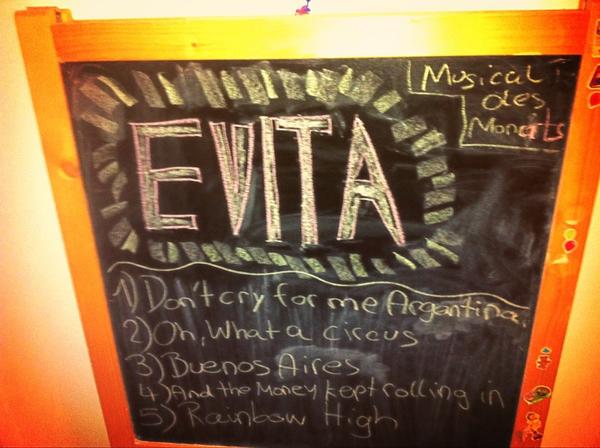 Musical
des
Monats
EVITA
1) Don't cry for me Argantina.
2) Oh, What a circus
3) Buenos Aires
4) And the Money kept rolling in
5) Rainbow High